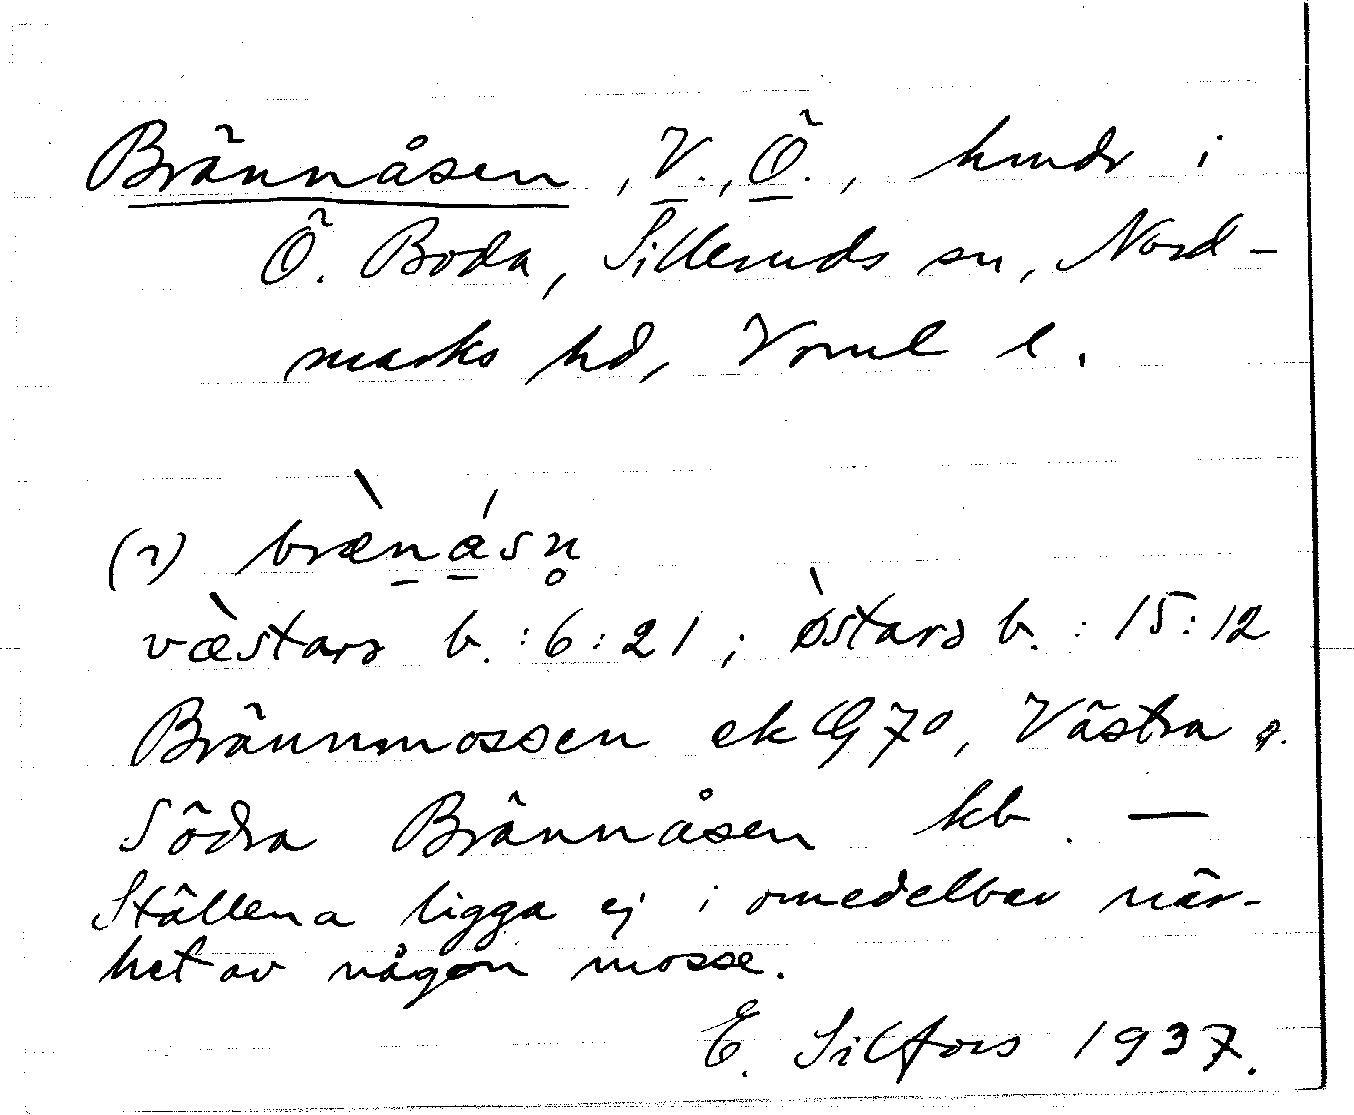 Brännåsen, V., Ö., hmdr i
Ö. Boda, Silleruds sn, Nord-
marks hd, Vrml l.
(2) brænåsn̥
væstars b. : 6:21 ; østars b. : 15:12
Brännmossen ek G 70, Västra o.
Södra Brännåsen kb. —
Ställena ligga ej i omedelbar när-
het av någon mosse.
E. Silfors 1937.